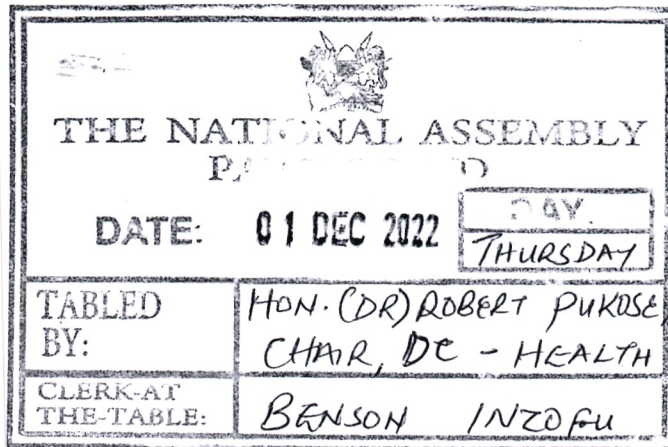 THE NATIONAL ASSEMBLY
DATE: 01 DEC 2022
DAY.
THURSDAY
TABLED BY:
HON. (DR) ROBERT PUKOSE,
CHAIR, DC - HEALTH
CLERK-AT THE-TABLE:
BENSON INZOFU